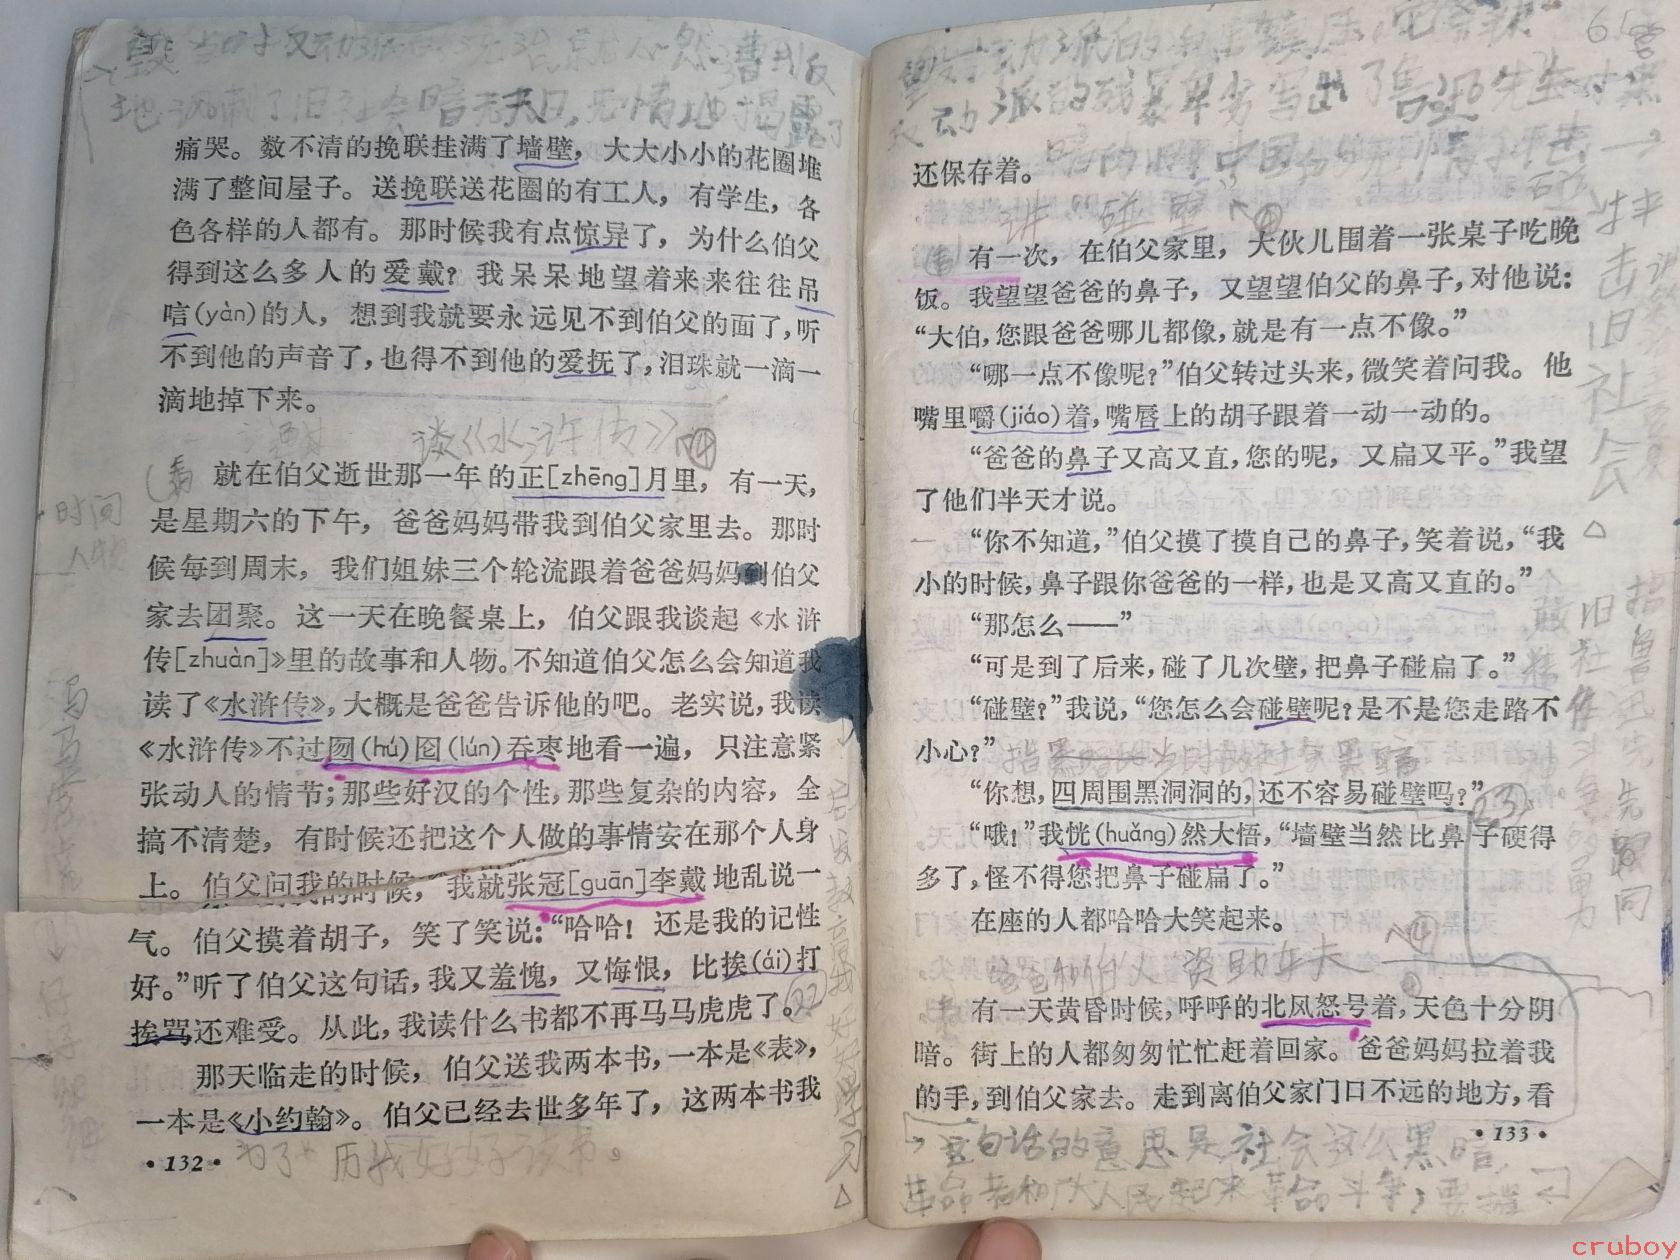 地讽刺了旧社会暗无天日,无情地揭露了
痛哭。数不清的挽联挂满了墙壁,大大小小的花圈堆
满了整间屋子。送挽联送花圈的有工人,有学生,各
色各样的人都有。那时候我有点惊异了,为什么伯父
得到这么多人的爱戴?我呆呆地望着来来往往吊
唁(yàn)的人,想到我就要永远见不到伯父的面了,听
不到他的声音了,也得不到他的爱抚了,泪珠就一滴一
滴地掉下来。
谈《水浒传》
就在伯父逝世那一年的正[zhēng]月里,有一天,
是星期六的下午,爸爸妈妈带我到伯父家里去。那时
候每到周末,我们姐妹三个轮流跟着爸爸妈妈到伯父
家去团聚。这一天在晚餐桌上,伯父跟我谈起《水浒
传[zhuàn]》里的故事和人物。不知道伯父怎么会知道我
读了《水浒传》,大概是爸爸告诉他的吧。老实说,我读
《水浒传》不过囫(hú)囵(lún)吞枣地看一遍,只注意紧
张动人的情节;那些好汉的个性,那些复杂的内容,全
搞不清楚,有时候还把这个人做的事情安在那个人身
上。伯父问我的时候,我就张冠[guān]李戴地乱说一
气。伯父摸着胡子,笑了笑说:“哈哈!还是我的记性
好。”听了伯父这句话,我又羞愧,又悔恨,比挨(ái)打
挨骂还难受。从此,我读什么书都不再马马虎虎了。
那天临走的时候,伯父送我两本书,一本是《表》,
一本是《小约翰》。伯父已经去世多年了,这两本书我
•132•
时间
人物
反动派的残暴卑劣写出了鲁迅先生对黑
还保存着。
讲“碰壁”
有一次,在伯父家里,大伙儿围着一张桌子吃晚
饭。我望望爸爸的鼻子,又望望伯父的鼻子,对他说:
“大伯,您跟爸爸哪儿都像,就是有一点不像。”
“哪一点不像呢?”伯父转过头来,微笑着问我。他
嘴里嚼(jiáo)着,嘴唇上的胡子跟着一动一动的。
“爸爸的鼻子又高又直,您的呢,又扁又平。”我望
了他们半天才说。
“你不知道,”伯父摸了摸自己的鼻子,笑着说,“我
小的时候,鼻子跟你爸爸的一样,也是又高又直的。”
“那怎么——”
“可是到了后来,碰了几次壁,把鼻子碰扁了。”
“碰壁?”我说,“您怎么会碰壁呢?是不是您走路不
小心?”
“你想,四周围黑洞洞的,还不容易碰壁吗?”
“哦!”我恍(huǎng)然大悟,“墙壁当然比鼻子硬得
多了,怪不得您把鼻子碰扁了。”
在座的人都哈哈大笑起来。
爸爸和伯父 资助车夫
有一天黄昏时候,呼呼的北风怒号着,天色十分阴
暗。街上的人都匆匆忙忙赶着回家。爸爸妈妈拉着我
的手,到伯父家去。走到离伯父家门口不远的地方,看
•133•
这句话的意思是社会这么黑暗,
抨击旧社会
cruboy